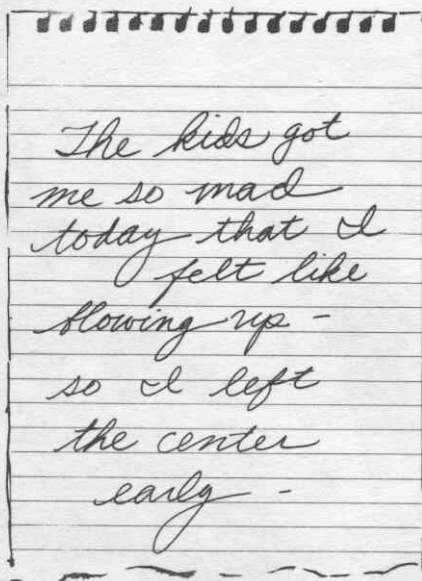 The kids got
me so mad
today that I
felt like
blowing up -
so I left
the center
early -